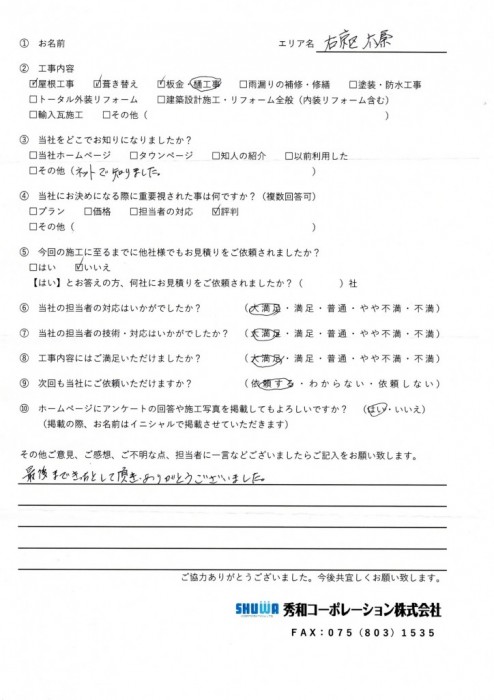 ① お名前 エリア名 右京区 太秦
② 工事内容
☑屋根工事 ☑葺き替え ☑板金・樋工事 □雨漏りの補修・修繕 □塗装・防水工事
□トータル外装リフォーム □建築設計施工・リフォーム全般（内装リフォーム含む）
□輸入瓦施工 □その他（ ）
③ 当社をどこでお知りになりましたか？
□当社ホームページ □タウンページ □知人の紹介 □以前利用した
□その他（ネットで知りました。 ）
④ 当社にお決めになる際に重要視された事は何ですか？（複数回答可）
□プラン □価格 □担当者の対応 ☑評判
□その他（ ）
⑤ 今回の施工に至るまでに他社様でもお見積りをご依頼されましたか？
□はい ☑いいえ
【はい】とお答えの方、何社にお見積りをご依頼されましたか？（ ）社
⑥ 当社の担当者の対応はいかがでしたか？ （大満足・満足・普通・やや不満・不満）
⑦ 当社の担当者の技術・対応はいかがでしたか？ （大満足・満足・普通・やや不満・不満）
⑧ 工事内容にはご満足いただけましたか？ （大満足・満足・普通・やや不満・不満）
⑨ 次回も当社にご依頼いただけますか？ （依頼する・わからない・依頼しない）
⑩ ホームページにアンケートの回答や施工写真を掲載してもよろしいですか？ （はい・いいえ）
（掲載の際、お名前はイニシャルで掲載させていただきます）
その他ご意見、ご感想、ご不明な点、担当者に一言などございましたらご記入をお願い致します。
最後まできっちとして頂き、ありがとうございました。
ご協力ありがとうございました。今後共宜しくお願い致します。
SHUWA 秀和コーポレーション株式会社
FAX：075（803）1535